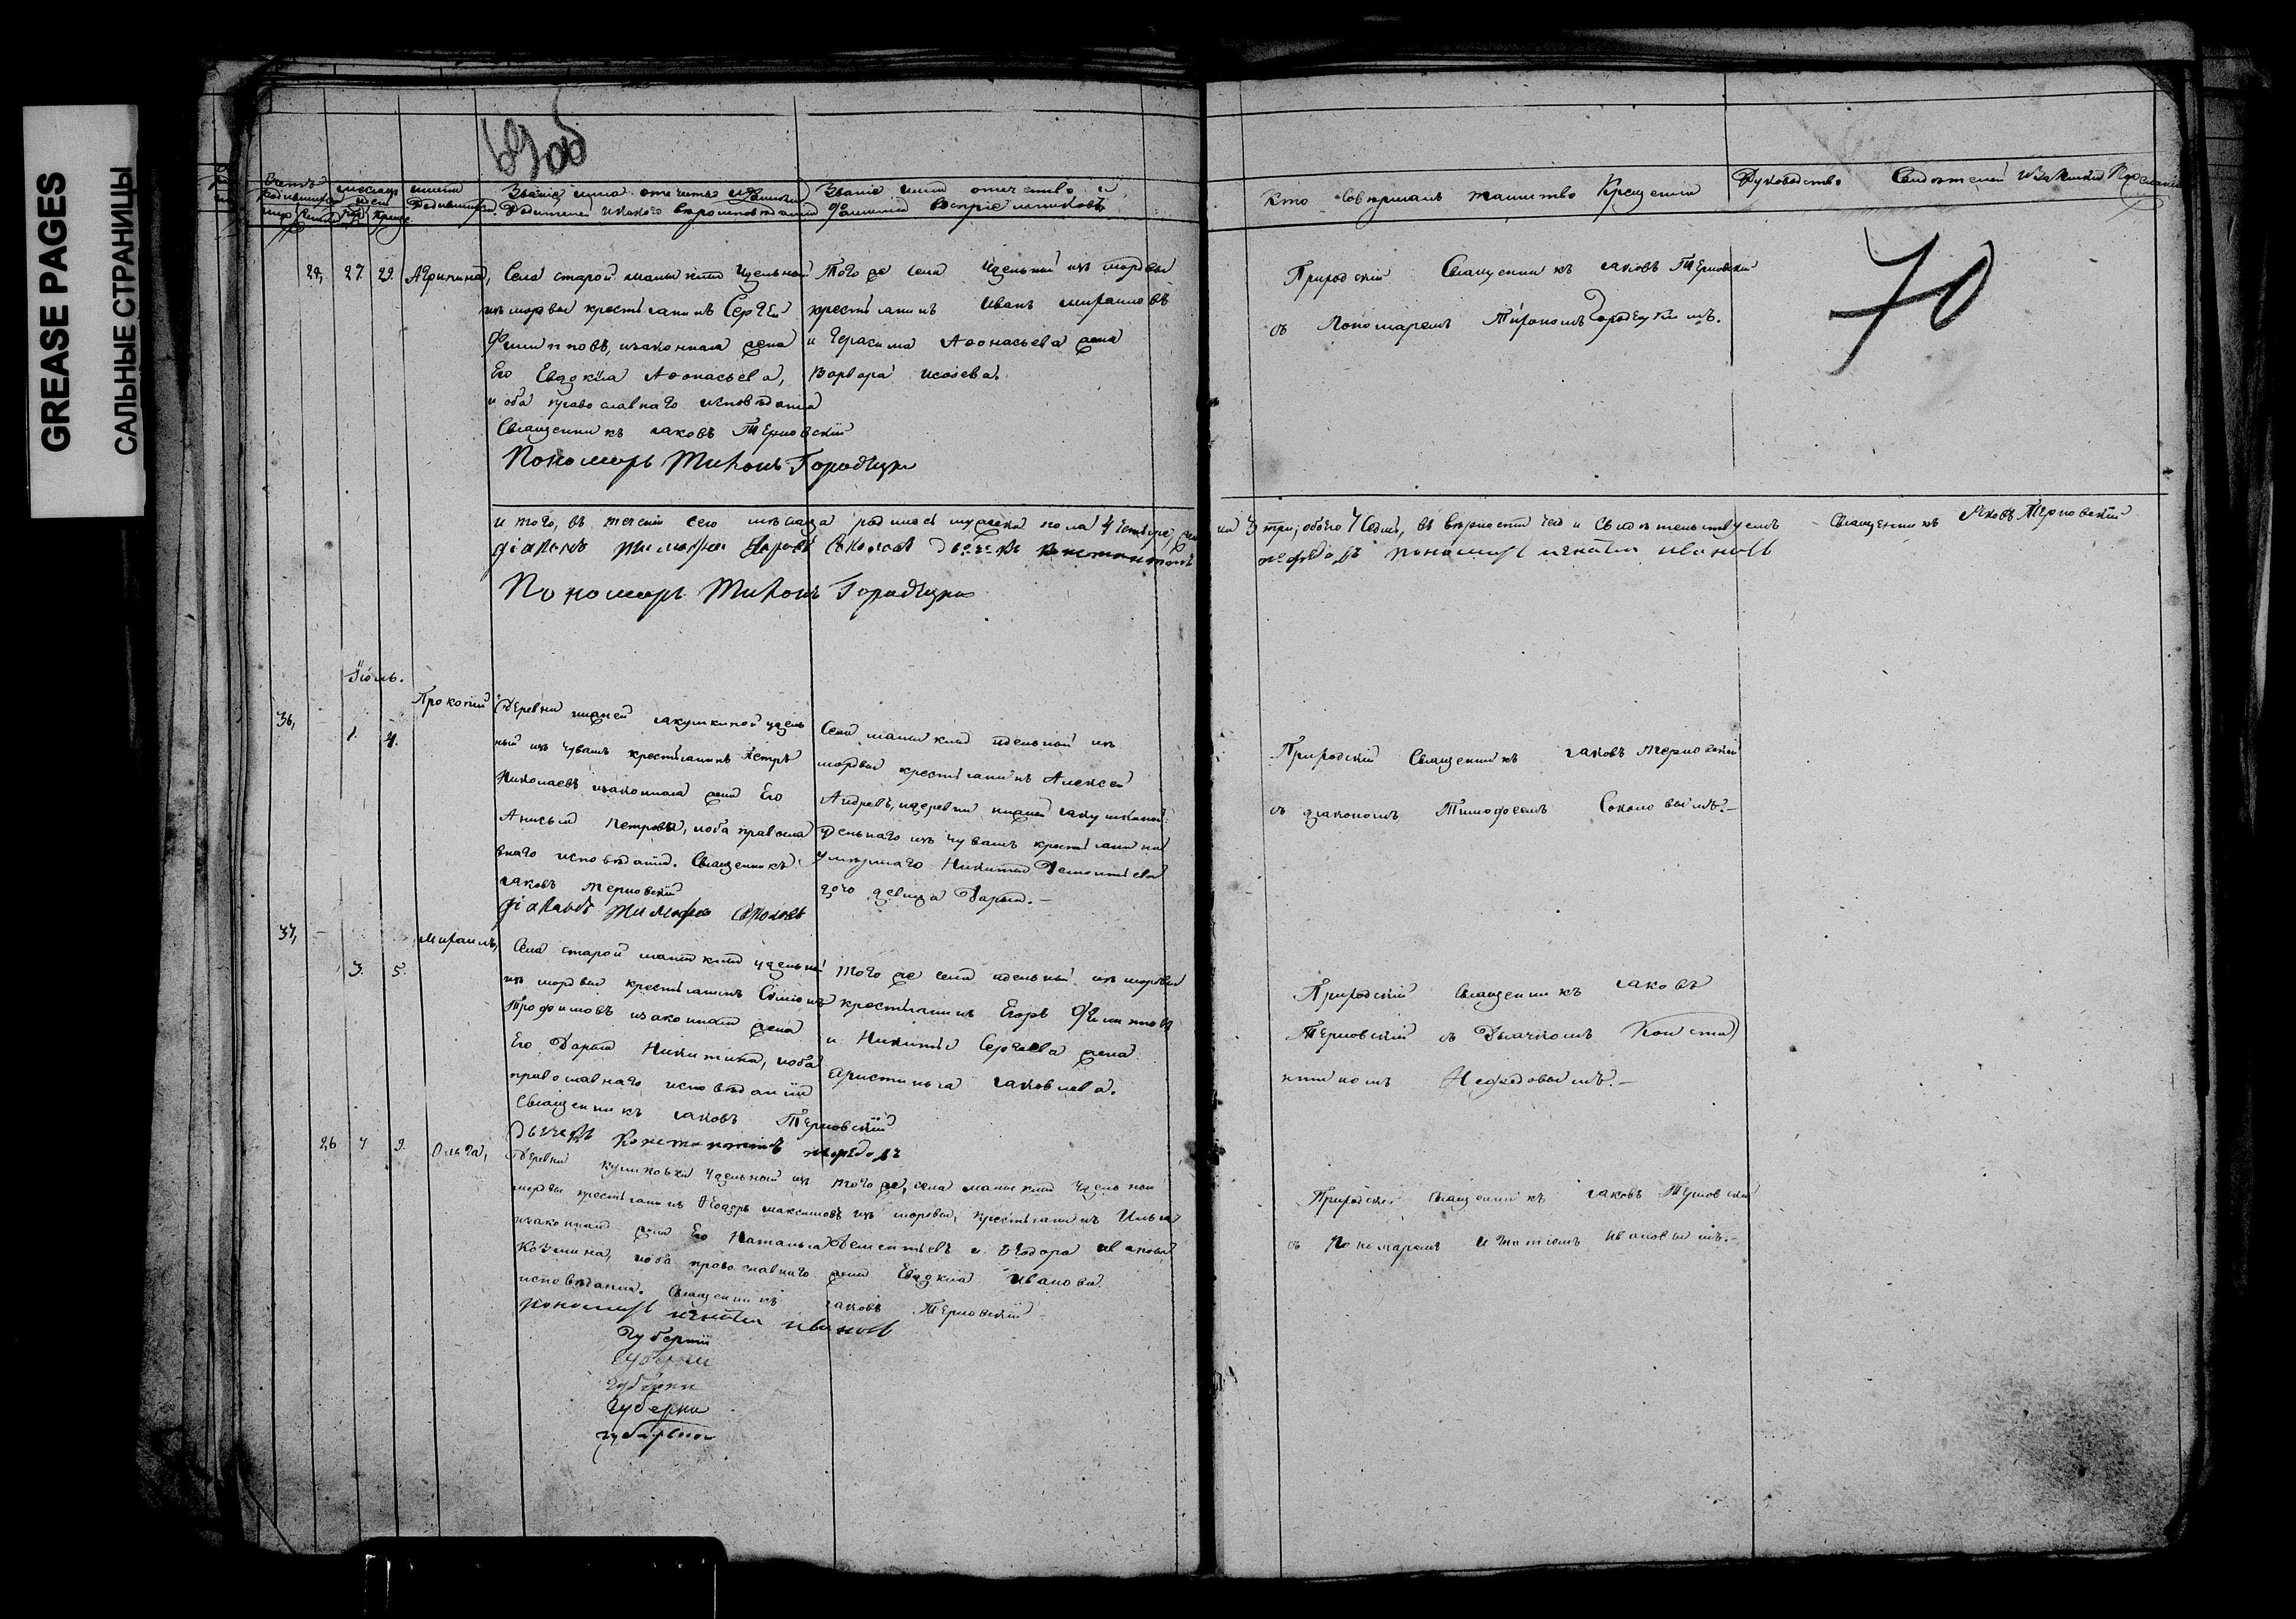 GREASE PAGES
САЛЬНЫЕ СТРАНИЦЫ
69об
70
Счетъ родившихся
месяцъ и день
имена родившихся
Званіе имя отчество и фамилія
родителей и какого вероисповеданія
Званіе имя отчество и
фамилія воспріемниковъ
Кто совершалъ таинство Крещенія
Рукоприкладство Свидетелей
27 29 Агрипина,
Села старой маныкина удельный
изъ мордвы крестьянинъ Сергей
Филипповъ, и законная жена
его Евдокія Афонасьева,
и оба православнаго исповеданія
Священникъ Іаковъ Терновскій
Пономарь Тихонъ Городецкій
Того же села удельный изъ мордвы
крестьянинъ Иванъ Михаиловъ
и Герасима Афонасьева жена
Варвара Исаева.
Приходскій Священникъ Іаковъ Терновскій
съ Пономаремъ Тихономъ Городецкимъ.
и того, въ теченіи сего месяца родилось мужеска пола 4 четыре, женска 3 три, обоего 7 Седмь, въ верности чего и свидетельствуемъ Священникъ Іаковъ Терновскій
діаконъ Тимофей Соколовъ дьячекъ Константинъ Нефедовъ пономарь Игнатій Ивановъ
Пономарь Тихонъ Городецкій
Іюль.
36, 1. 4. Прокопій
Деревни нижней Іакушкиной удель
ный изъ чувашъ крестьянинъ Петръ
Николаевъ и законная жена его
Анисья Петрова, и оба правосла
внаго исповеданія. Священникъ
Іаковъ Терновскій
діаконъ Тимофей Соколовъ
Села маныкина удельный изъ
мордвы крестьянинъ Алексей
Андреевъ, и деревни нижней Іакушкиной
удельнаго изъ чувашъ крестьянина
умершаго Никиты Дементьева
дочь девица Дарья.
Приходскій Священникъ Іаковъ Терновскій
съ діакономъ Тимофеемъ Соколовымъ.
37, 3. 5. Михаилъ,
Села старой маныкина удельный
изъ мордвы крестьянинъ Симіонъ
Трофимовъ и законная жена
его Дарья Никитина, и оба
православнаго исповеданія
Священникъ Іаковъ Терновскій
дьячекъ Константинъ Нефедовъ
того же села удельный изъ мордвы
крестьянинъ Егоръ Филиповъ
и Никиты Сергеева жена
Христинья Іаковлева.
Приходскій Священникъ Іаковъ
Терновскій съ Дьячкомъ Конста
нтиномъ Нефедовымъ.
26 7 9. Ольга,
Деревни куликовки удельный изъ
мордвы крестьянинъ Феодоръ Максимовъ
и законная жена его Наталья
Козмина, и оба православнаго
исповеданія. Священникъ Іаковъ Терновскій
пономарь Игнатій Ивановъ
того же, села маныкина удельной
изъ мордвы, крестьянинъ Илья
Дементьевъ и Феодора Иванова
жена Евдокія Иванова.
Приходскій Священникъ Іаковъ Терновскій
съ Пономаремъ Игнатіемъ Ивановымъ.
Губерніи
Губерніи
Губерніи
Губерніи
Губерніи